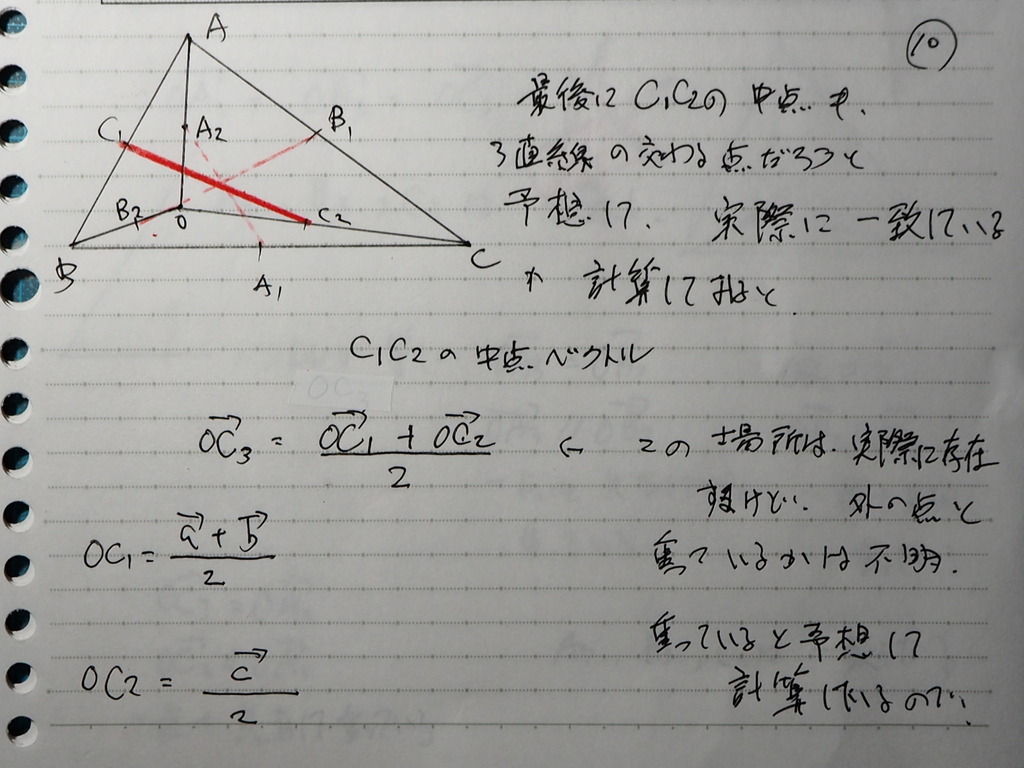 ⑩
A
C₁
A₂
B₁
B₂
O
C₂
B
A₁
C
最後に C₁C₂の 中点 も、
3直線 の 交わる 点だろうと
予想して、 実際に 一致している
か 計算してみると
C₁C₂の 中点ベクトル
→OC₃ = (→OC₁ + →OC₂)/2 ← この 場所は、実際に存在
するけど、 外の点と
重っているかは 不明.
OC₁ = (→a + →b)/2
重っていると予想して
計算しているので、
OC₂ = →c/2